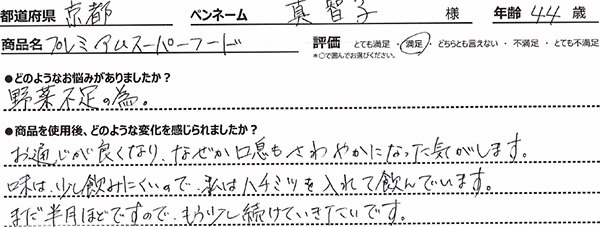 都道府県 京都 ペンネーム 真智子 様 年齢 44 歳
商品名 プレミアムスーパーフード 評価 とても満足・満足・どちらとも言えない・不満足・とても不満足
*○で囲んでお選びください。
●どのようなお悩みがありましたか？
野菜不足の為。
●商品を使用後、どのような変化を感じられましたか？
お通じが良くなり、なぜか口息もさわやかになった気がします。
味は、少し飲みにくいので、私はハチミツを入れて飲んでいます。
まだ半月ほどですので、もう少し続けていきたいです。